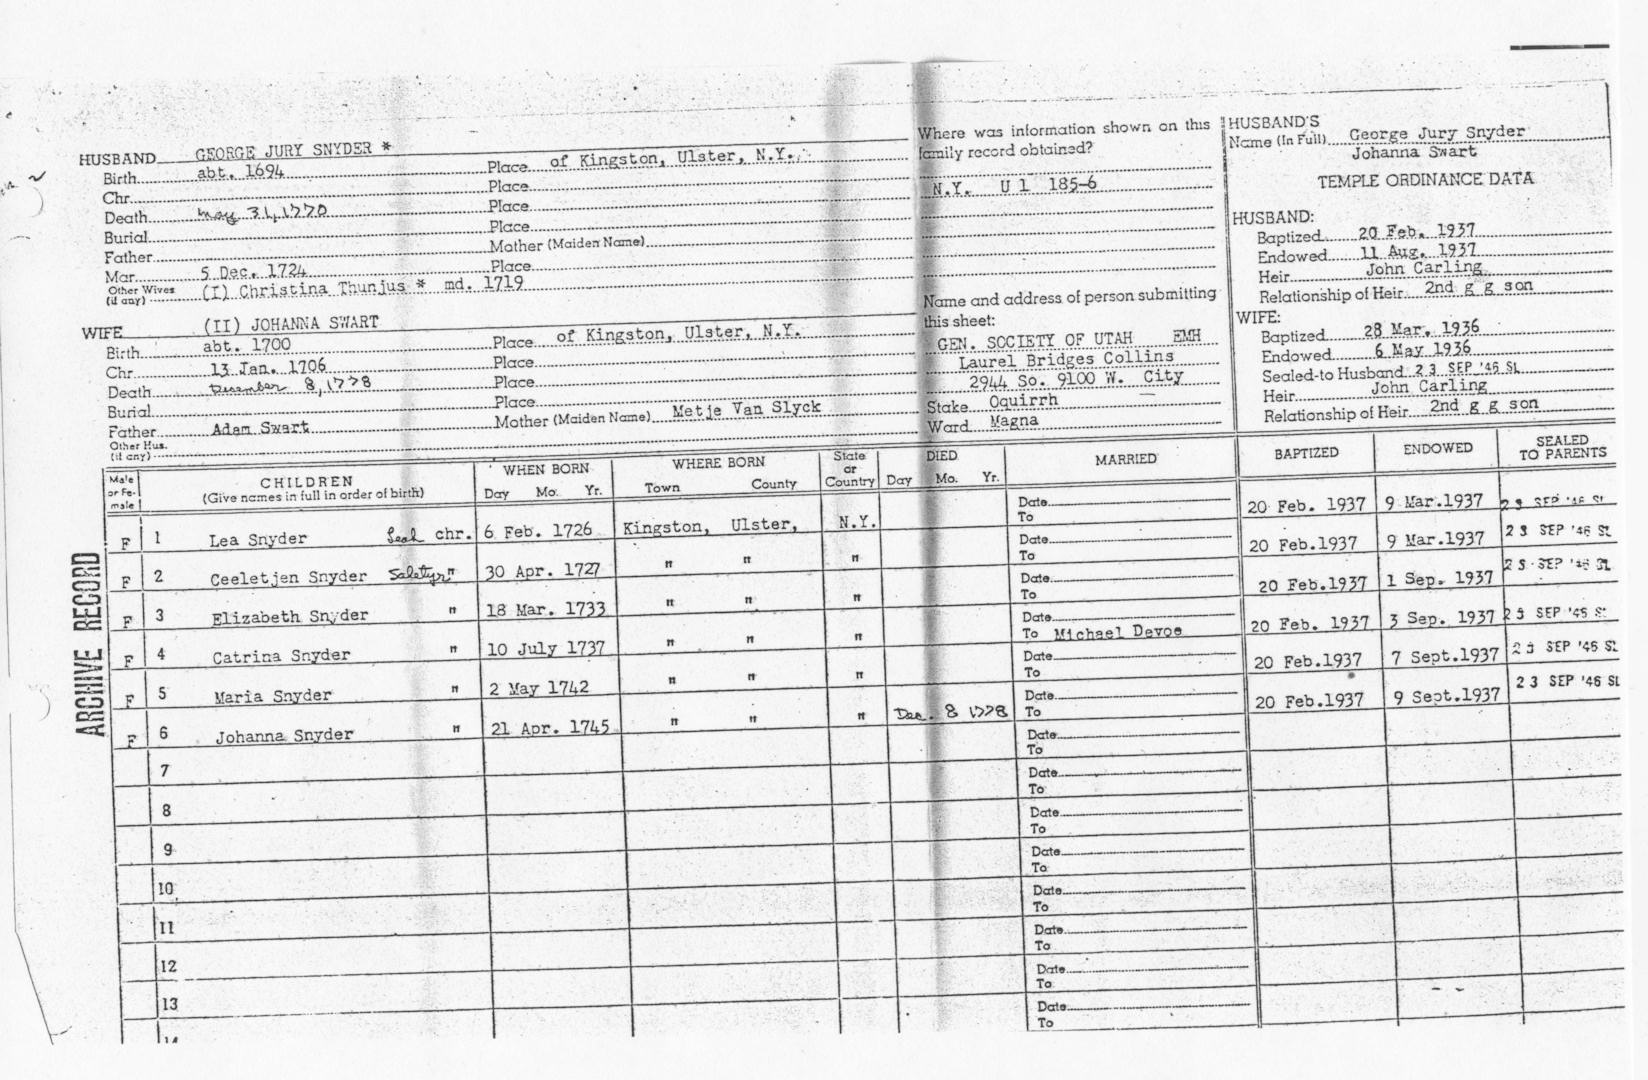 HUSBAND GEORGE JURY SNYDER *
Birth abt. 1694 Place of Kingston, Ulster, N.Y.
Chr. Place
Death May 31, 1770 Place
Burial Place
Father Mother (Maiden Name)
Mar. 5 Dec. 1724 Place
Other Wives (if any) (I) Christina Thunjus * md. 1719
WIFE (II) JOHANNA SWART
Birth abt. 1700 Place of Kingston, Ulster, N.Y.
Chr. 13 Jan. 1706 Place
Death December 8, 1778 Place
Burial Place
Father Adam Swart Mother (Maiden Name) Metje Van Slyck
Other Hus. (if any)
Where was information shown on this
family record obtained?
N.Y. U 1 185-6
Name and address of person submitting
this sheet:
GEN. SOCIETY OF UTAH EMH
Laurel Bridges Collins
2944 So. 9100 W. City
Stake Oquirrh
Ward Magna
HUSBAND'S
Name (In Full) George Jury Snyder
Johanna Swart
TEMPLE ORDINANCE DATA
HUSBAND:
Baptized 20 Feb. 1937
Endowed 11 Aug. 1937
Heir John Carling
Relationship of Heir 2nd g g son
WIFE:
Baptized 28 Mar. 1936
Endowed 6 May 1936
Sealed to Husband 23 SEP '46 SL
Heir John Carling
Relationship of Heir 2nd g g son
Male or Female CHILDREN (Give names in full in order of birth) WHEN BORN Day Mo. Yr. WHERE BORN Town County State or Country DIED Day Mo. Yr. MARRIED BAPTIZED ENDOWED SEALED TO PARENTS
F 1 Lea Snyder Leah chr. 6 Feb. 1726 Kingston, Ulster, N.Y. Date To 20 Feb. 1937 9 Mar.1937 23 SEP '46 SL
F 2 Ceeletjen Snyder " 30 Apr. 1727 " " " Date To 20 Feb.1937 9 Mar.1937 23 SEP '46 SL
F 3 Elizabeth Snyder " 18 Mar. 1733 " " " Date To 20 Feb.1937 1 Sep. 1937 23 SEP '46 SL
F 4 Catrina Snyder " 10 July 1737 " " " Date To Michael Devoe 20 Feb. 1937 3 Sep. 1937 23 SEP '46 SL
F 5 Maria Snyder " 2 May 1742 " " " Date To 20 Feb.1937 7 Sept.1937 23 SEP '46 SL
F 6 Johanna Snyder " 21 Apr. 1745 " " " Dec. 8 1778 Date To 20 Feb.1937 9 Sept.1937 23 SEP '46 SL
7 Date To
8 Date To
9 Date To
10 Date To
11 Date To
12 Date To
13 Date To
14
ARCHIVE RECORD